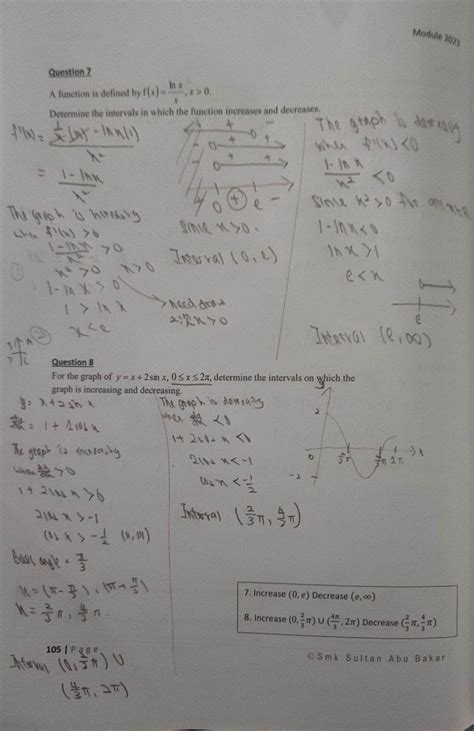 Module 2023
Question 7
A function is defined by f(x) = ln x / x, x > 0.
Determine the intervals in which the function increases and decreases.
f'(x) = (1/x (x) - ln x (1)) / x²
= (1 - ln x) / x²
The graph is increasing
when f'(x) > 0
(1 - ln x) / x² > 0
x² > 0 x > 0
1 - ln x > 0
1 > ln x
x < e
+ -
- + +
- + +
0 + e -
since x > 0.
Interval (0, e)
need draw
x > 0
The graph is decreasing
when f'(x) < 0
(1 - ln x) / x² < 0
since x² > 0 for all
1 - ln x < 0
ln x > 1
e < x
0
e
Interval (e, ∞)
Question 8
For the graph of y = x + 2 sin x, 0 ≤ x ≤ 2π, determine the intervals on which the
graph is increasing and decreasing.
y = x + 2 sin x
dy/dx = 1 + 2 cos x
The graph is increasing
when dy/dx > 0
1 + 2 cos x > 0
2 cos x > -1
cos x > -1/2
Basic angle = π/3
x = (π - π/3), (π + π/3)
x = 2/3 π, 4/3 π.
The graph is decreasing
when dy/dx < 0
1 + 2 cos x < 0
2 cos x < -1
cos x < -1/2
Interval (2/3 π, 4/3 π)
y
2
0 2/3 π 4/3 π 2π x
-2
7. Increase (0, e) Decrease (e, ∞)
8. Increase (0, 2/3 π) ∪ (4π/3, 2π) Decrease (2/3 π, 4/3 π)
105 | Page
© Smk Sultan Abu Bakar
Interval (0, 2/3 π) ∪
(4/3 π, 2π)